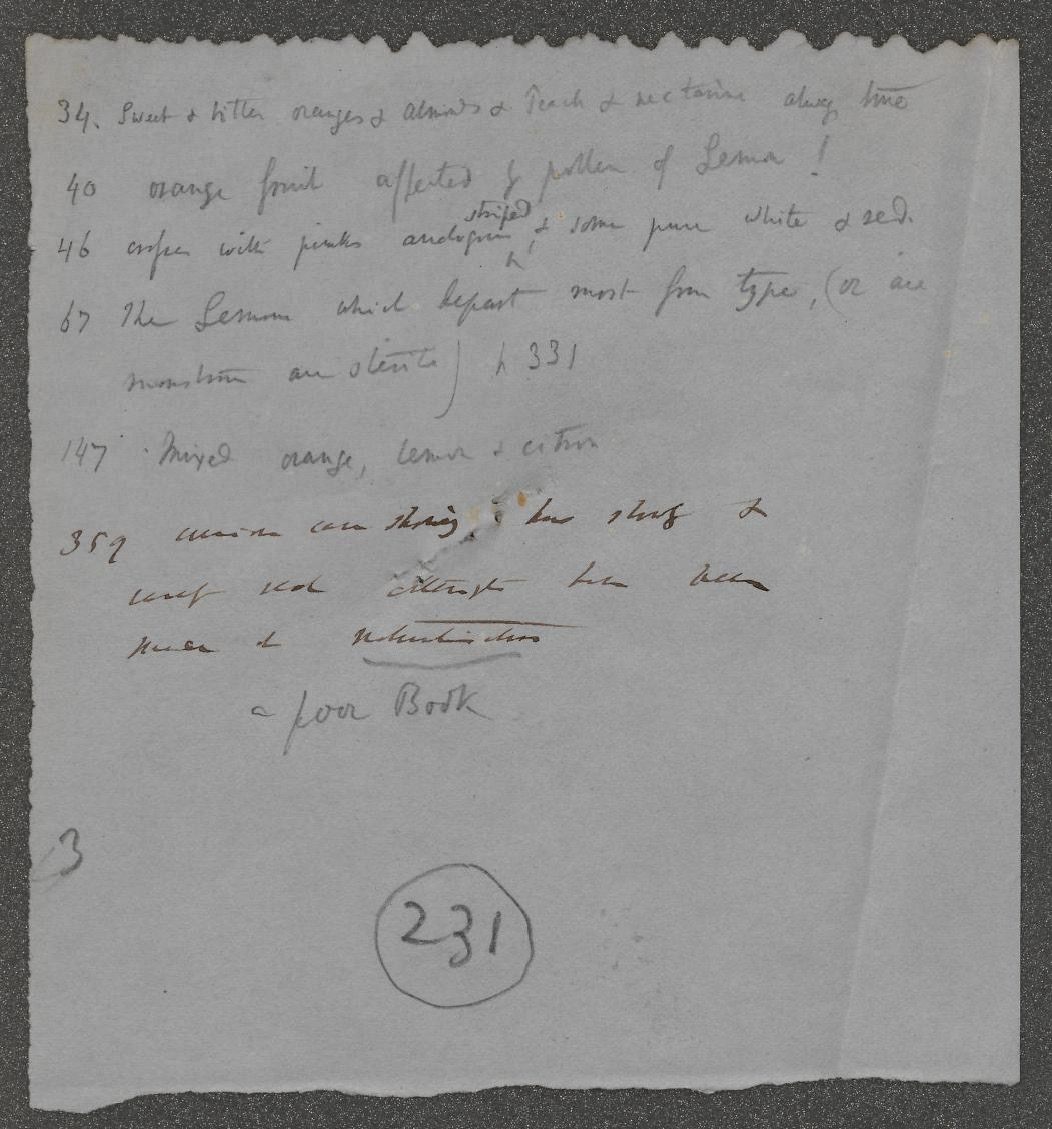 34. Sweet & bitter oranges & almonds & Peach & nectarine always true
40 orange fruit affected by pollen of Lemon !
46 crosses with pinks analogous striped, & some pure white & red.
67 The Lemons which depart most from type, (or are
monstrous are sterile) p 331
147 Mixed orange, lemon & citron
359 case showing how
attempts have been
made to
a poor Book
3
231